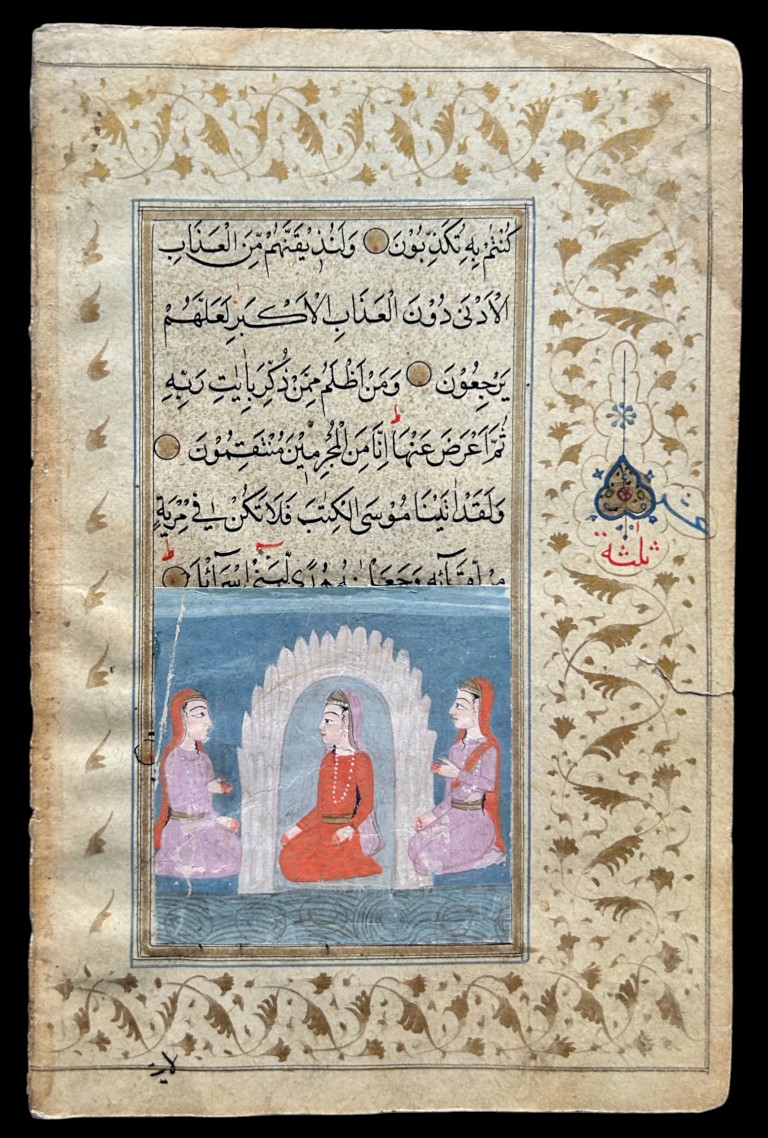 كُنْتُمْ بِهٖ تُكَذِّبُوْنَ وَلَنُذِيْقَنَّهُمْ مِّنَ الْعَذَابِ
الْاَدْنٰى دُوْنَ الْعَذَابِ الْاَكْبَرِ لَعَلَّهُمْ
يَرْجِعُوْنَ وَمَنْ اَظْلَمُ مِمَّنْ ذُكِّرَ بِاٰيٰتِ رَبِّهٖ
ط
ثُمَّ اَعْرَضَ عَنْهَا اِنَّا مِنَ الْمُجْرِمِيْنَ مُنْتَقِمُوْنَ
وَلَقَدْ اٰتَيْنَا مُوْسَى الْكِتٰبَ فَلَا تَكُنْ فِيْ مِرْيَةٍ
ط
مِنْ لِقَآئِهٖ وَجَعَلْنٰهُ هُدًى لِّبَنِيْٓ اِسْرَآئِيْلَ
ثلثة